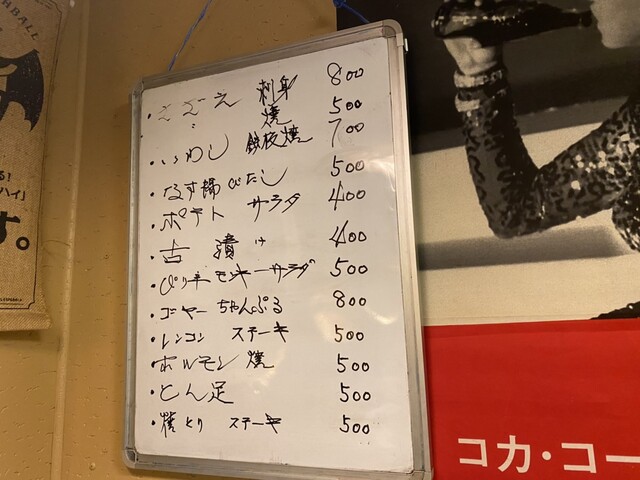 ・さざえ 刺身 800
焼 500
・いわし 鉄板焼 700
・なす揚びたし 500
・ポテト サラダ 400
・古漬け 400
・ピリ辛モンキーサラダ 500
・ゴーヤーちゃんぷる 800
・レンコン ステーキ 500
・ホルモン 焼 500
・とん足 500
・とり ステーキ 500
コカ・コー
る!
ハイ」
す。